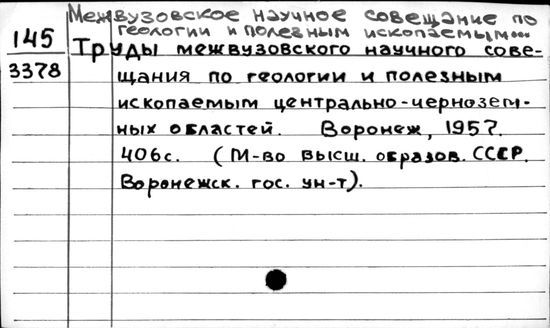 Межвузовское научное совещание по
геологии и полезным ископаемым...
145
3378
Труды межвузовского научного сове-
щания по геологии и полезным
ископаемым центрально-чернозем-
ных областей. Воронеж, 1957.
406с. (М-во высш. образов. СССР.
Воронежск. гос. ун-т).